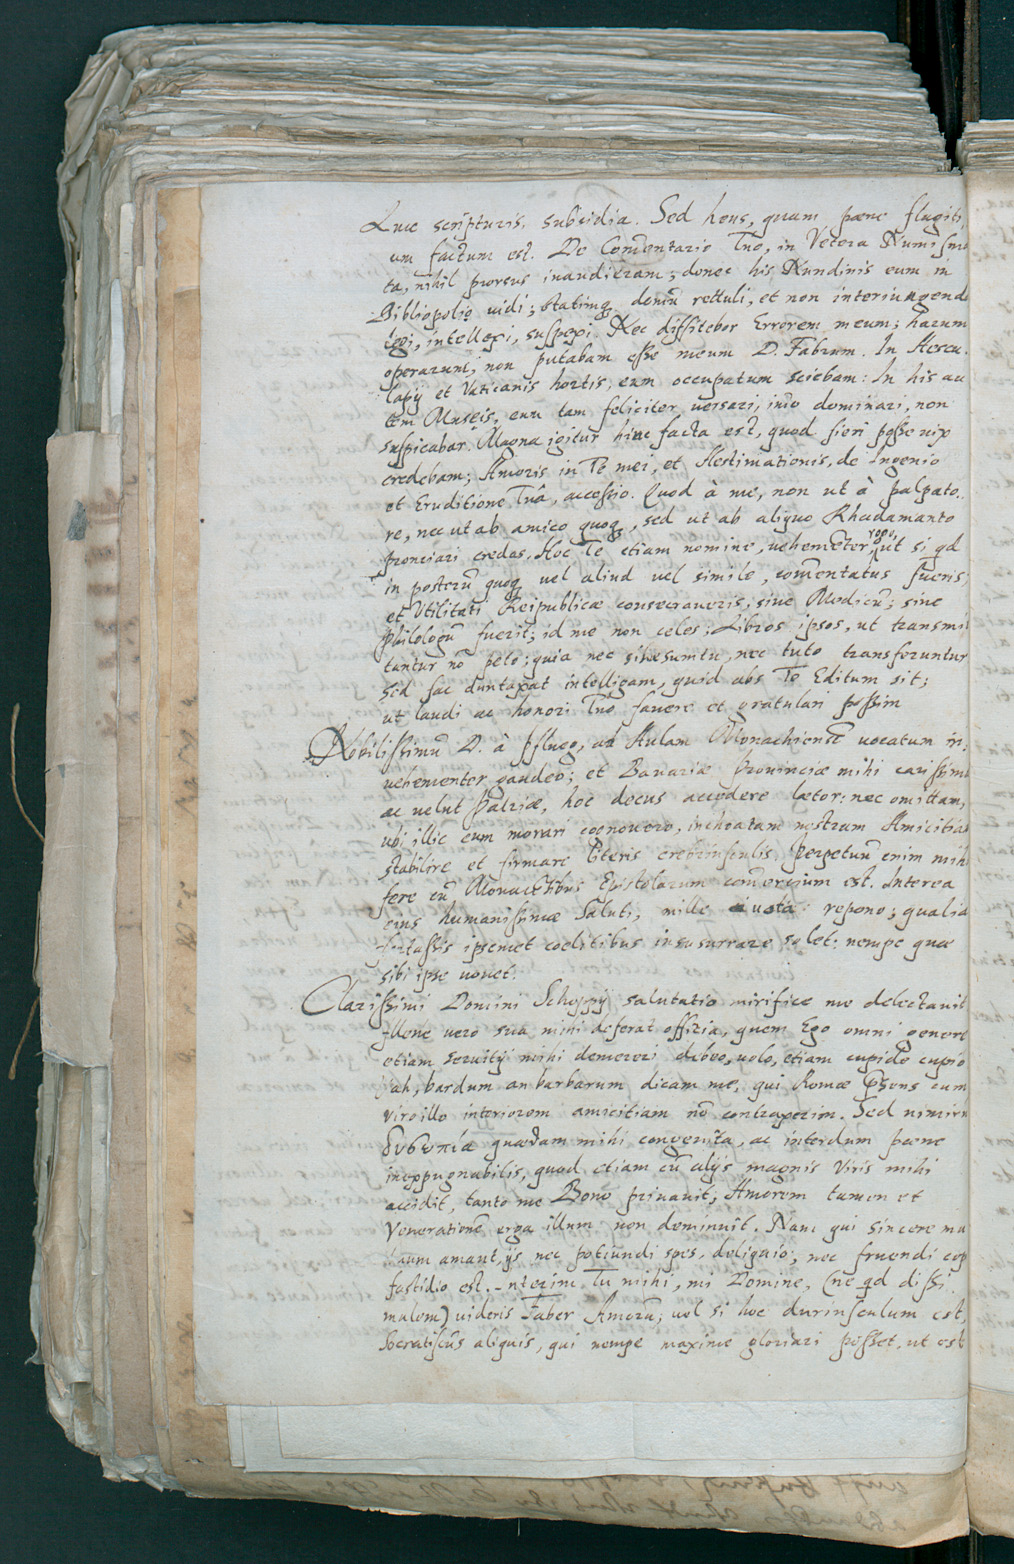 Quae scripturis, subsidia. Sed heus, quam paene flagiti
um factum est. De Com̄entario Tuo, in Vetera Numisma
ta, nihil prorsus inaudieram; donec his Nundinis eum in
Bibliopolio uidi; statimq; domū rettuli, et non interiungendo
legi, intellexi, suspexi. Nec diffitebor Errorem meum; harum
operarum, non putabam esse meum D. Fabrum. In Aescu
lapij et Vaticanis hortis, eum occupatum sciebam: In his au
tem Museis, eum tam feliciter uersari, imo dominari, non
suspicabar. Magna igitur hinc facta est, quod fieri posse uix
credebam; Amoris in Te mei, et Aestimationis, de Ingenio
et Eruditione Tuâ, accessio. Quod à me, non ut à palpato
re, nec ut ab amico quoq;, sed ut ab aliquo Rhadamanto
pronciari credas. Hoc Te etiam nomine, uehemēter rogo, ut si qd
in posterū quoq; uel aliud uel simile, com̄entatus fueris,
et Utilitati Reipublicae consecraueris; siue Medicū; siue
Philologū fuerit; id me non celes; Libros ipsos, ut transmi
tantur nō peto; quia nec sine sumtu, nec tuto transferuntur
sed fac duntaxat intelligam, quid abs Te Editum sit;
ut laudi ac honori Tuo fauere et gratulari possim
Nobilissimū D. à Pflueg, ad Aulam Monachiensē uocatum iri,
uehementer gaudeo; et Bauariae Prouinciae mihi carissimae
ac uelut Patriae, hoc decus accedere laetor: nec omittam,
ubi illic eum morari cognouero, inchoatam nostram Amicitiā
stabilire et firmare literis crebriusculis. Perpetuū enim mihi
fere cū Monacēsibus Epistolarum com̄ercium est. Interea
eius humanissimae Saluti, mille uota repono; qualia
fortassis ipsemet coelitibus insusurrare solet: nempe quae
sibi ipse uouet.
Clarissimi Domini Schoppij salutatio mirifice me delectauit
Illene uero sua mihi deferat officia, quem Ego omni genere
etiam seruitij mihi demereri debeo, uolo, etiam cupide cupio
ah, bardum an barbarum dicam me, qui Romae p̄sens cum
Viro illo interiorem amicitiam nō contraxerim. Sed nimirū
δυσωπία quaedam mihi congenita, ac interdum paene
inexpugnabilis, quod etiam cū alijs magnis Viris mihi
accidit, tanto me Bono priuauit; Amorem tamen et
Venerationē erga illum non deminuit. Nam qui sincere mu
tuum amant, ijs nec potiundi spes, deligatio; nec fruendi copia
fastidio est. Interim Tu mihi, mi Domine, (ne qd dissi
mulem) uideris Faber Amorū; uel si hoc duriusculum est,
Socratiscus aliquis, qui nempe maxime gloriari posset, ut est